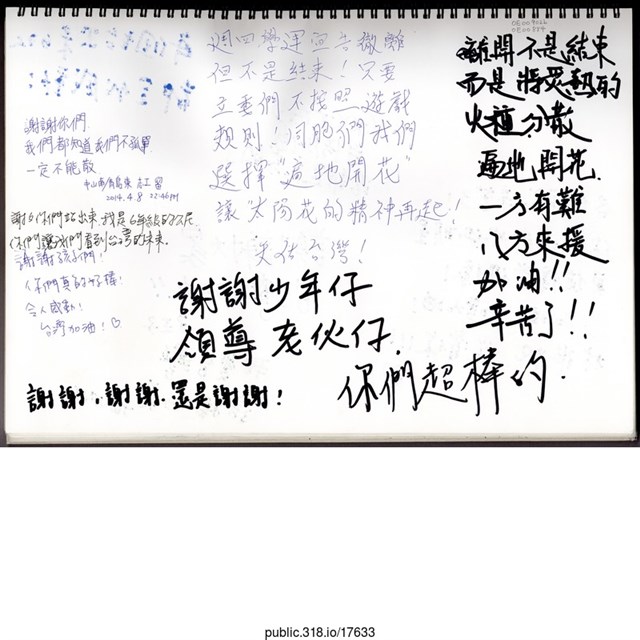 謝謝你們
我們都知道我們不孤單
一定不能散
2014.4.8 22:46PM
謝謝你們站出來,我是6年級的
你們讓我們看到台灣的未來.
謝謝孩子們!
你們真的好棒!
令人感動!
台灣加油!♡
週四學運宣告撤離
但不是結束!只要
立委們不按照遊戲
規則!同胞們我們
選擇"遍地開花"
讓太陽花的精神再起!
天佑台灣!
離開不是結束
而是將炙熱的
火種分散
遍地開花.
一方有難
八方來援
加油!!
辛苦了!!
謝謝少年仔
領導老伙仔.
你們超棒的.
謝謝,謝謝.還是謝謝!
public.318.io/17633